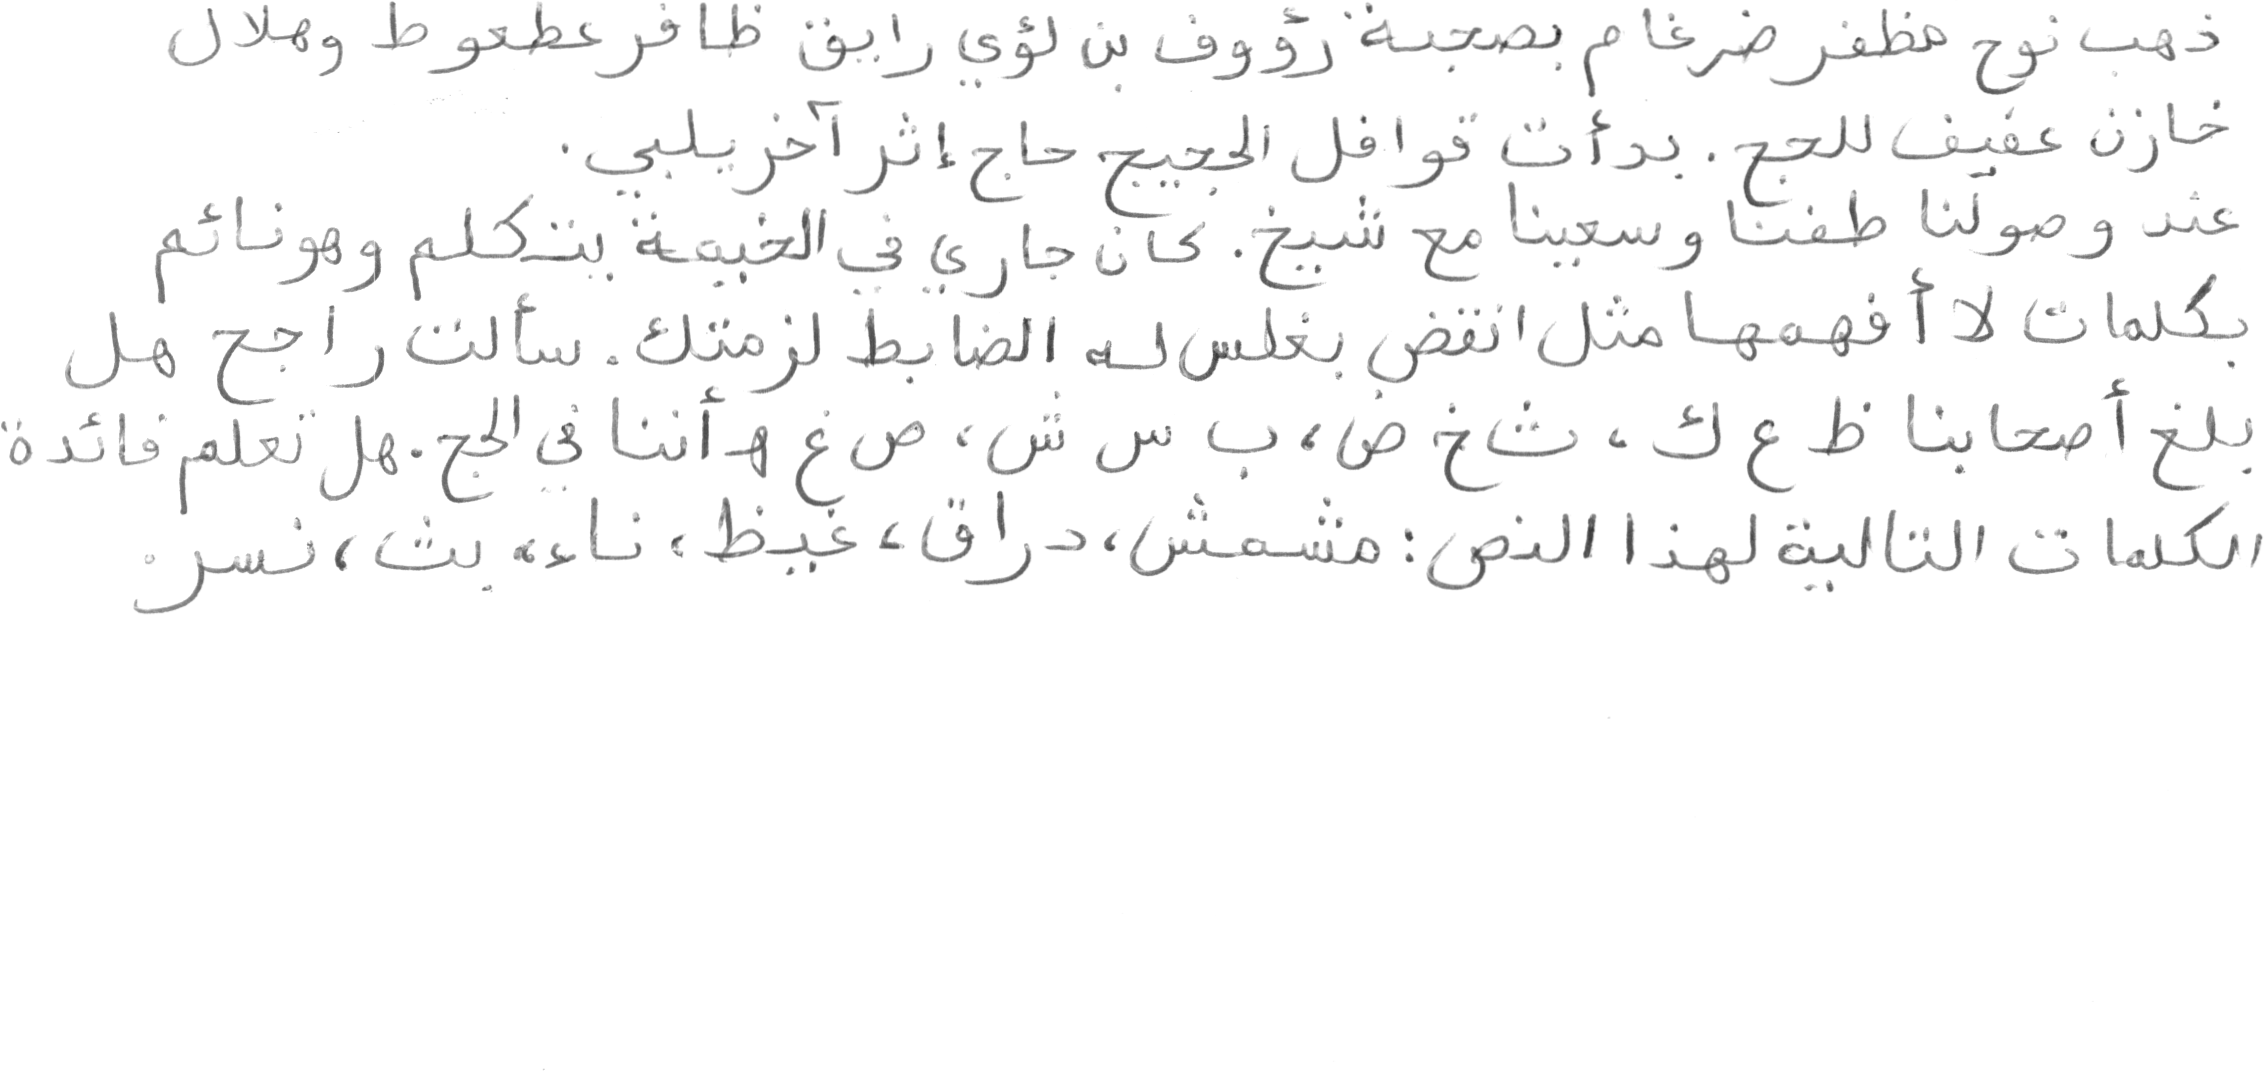 ذهب نوح مظفر ضرغام بصحبة رؤوف بن لؤي رايق ظافر عطعوط وهلال
خازن عفيف للحج. بدأت قوافل الحجيج حاج إثر آخر يلبي.
عند وصولنا طفنا وسعينا مع شيخ. كان جاري في الخيمة يتكلم وهو نائم
بكلمات لا أفهمها مثل انقض بغلس له الضابط لزمتك. سألت راجح هل
بلغ أصحابنا ظ ع ك، ث خ ض، ب س ش، ص غ هـ أننا في الحج. هل تعلم فائدة
الكلمات التالية لهذا النص: مشمش، دراق، غيظ، ناء، بث، نسر.